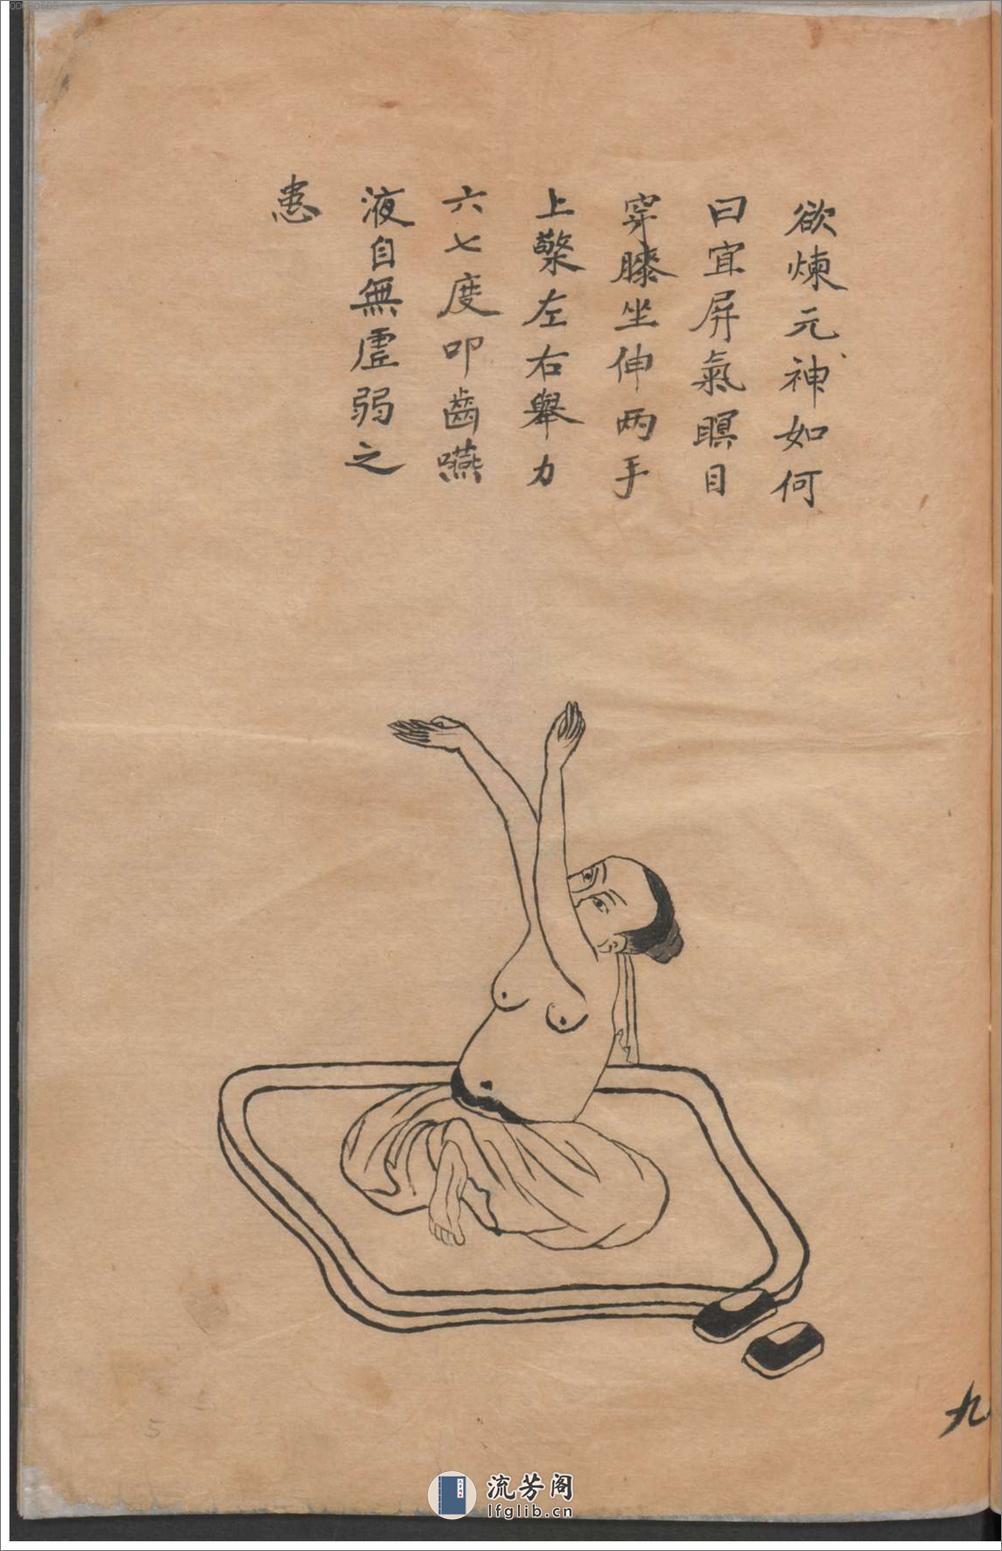 欲煉元神如何
曰宜屏氣瞑目
穿膝坐伸兩手
上擎左右舉力
六七度叩齒嚥
液自無虛弱之
患
九
5
流芳阁
lfglib.cn